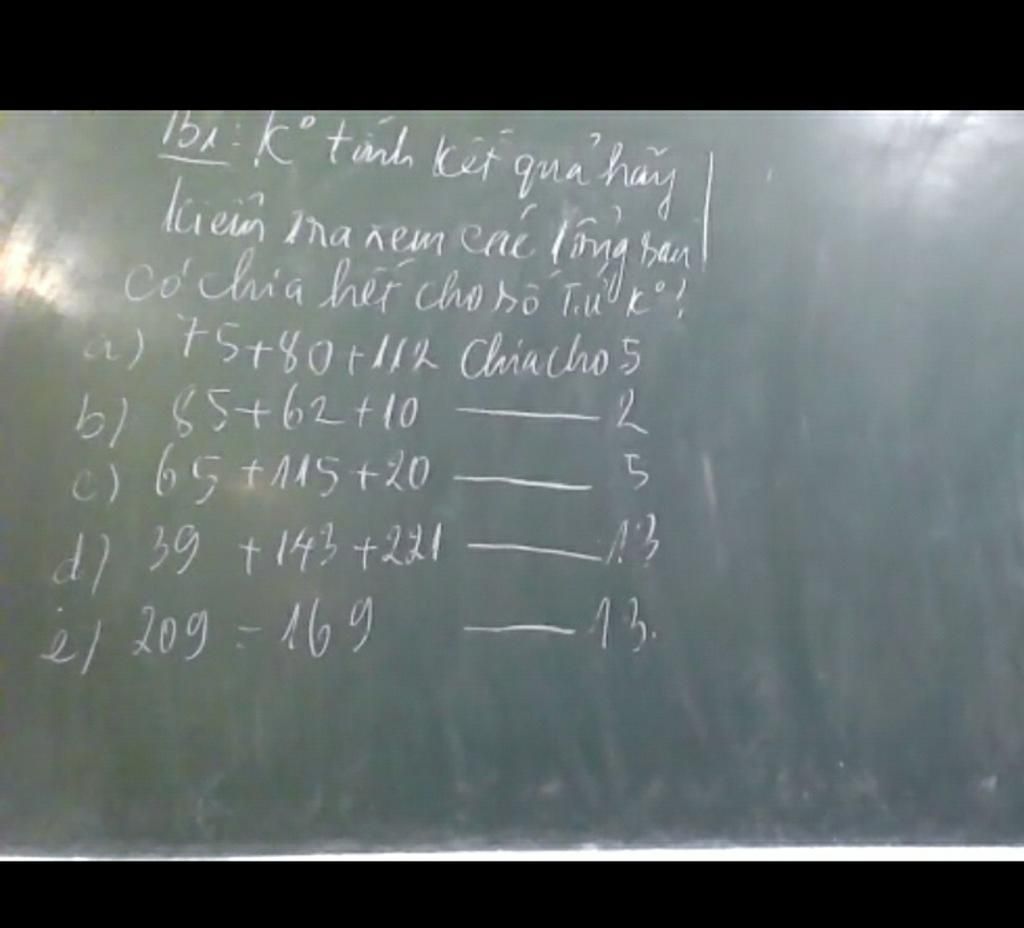 B1: K° tính kết quả hãy
kiểm tra xem các tổng sau
có chia hết cho số T.Ứ K°?
a) 75+80+112 Chia cho 5
b) 85+62+10 —— 2
c) 65+115+20 —— 5
d) 39 +143+221 —— 13
e) 209 - 169 —— 13.